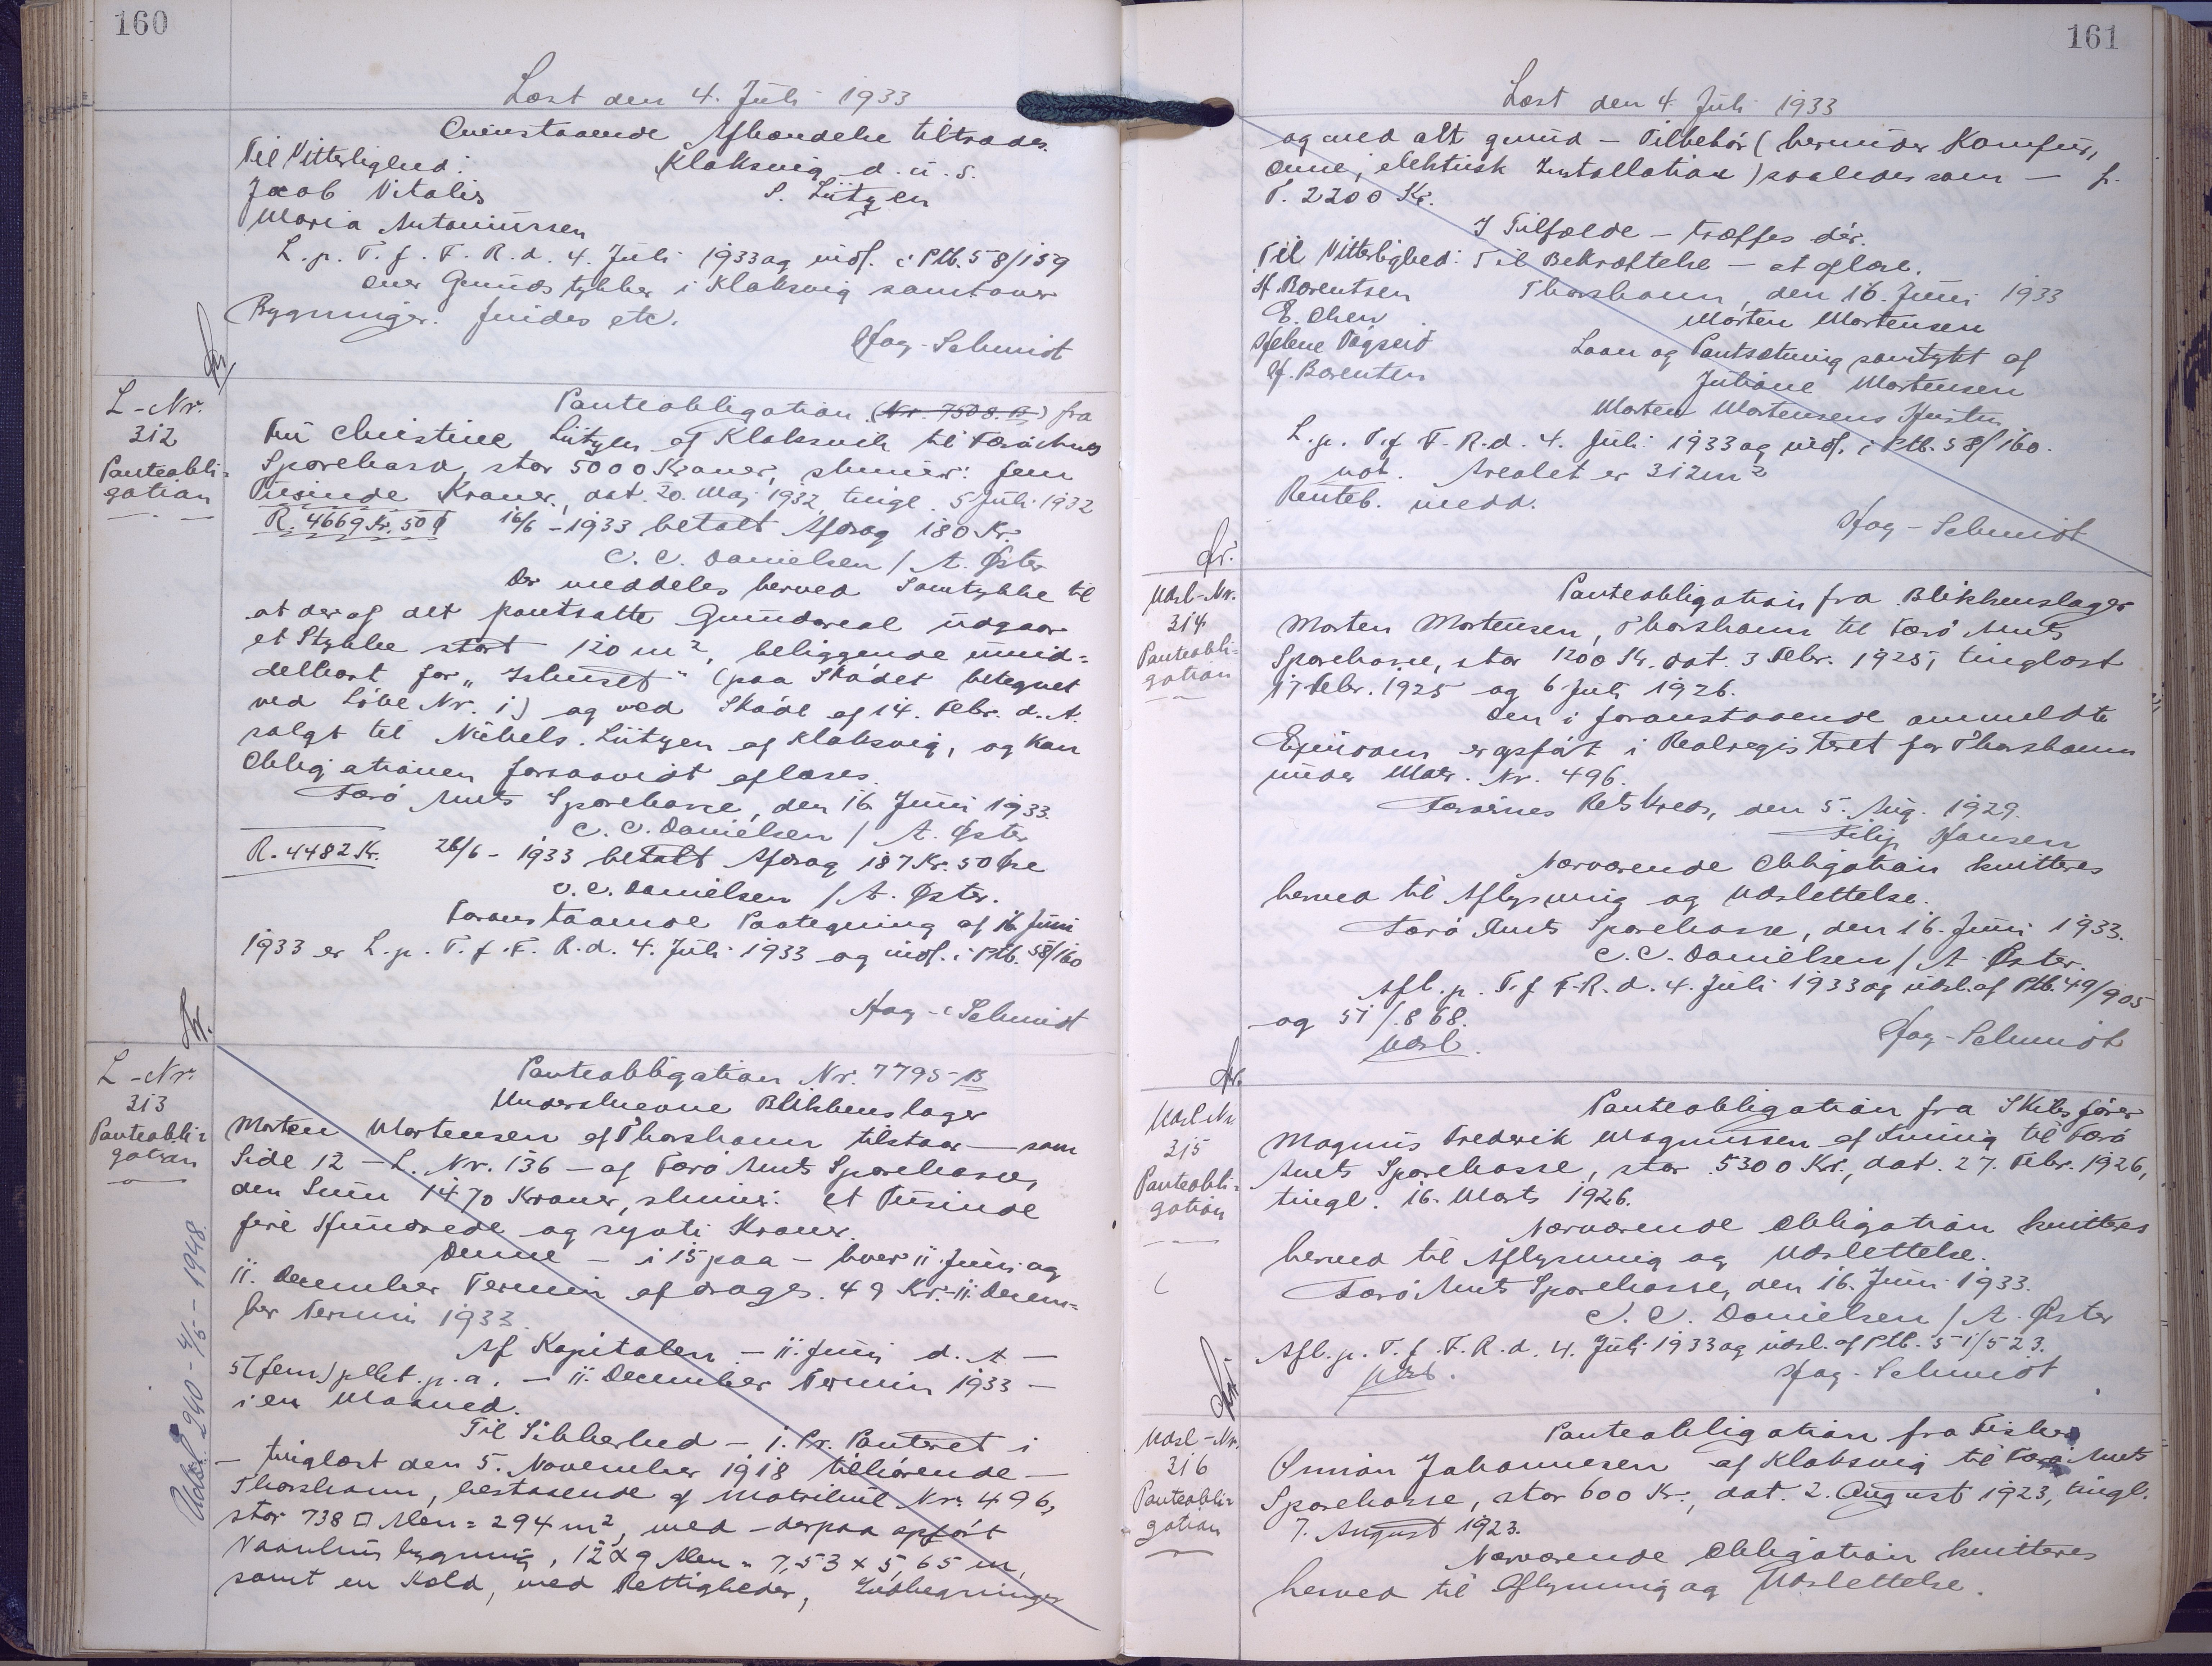 160
Læst den 4. Juli 1933
Ovenstaaende Afhændelse tiltrædes.
Til Vitterlighed: Klaksvig d. u. s.
Jacob Vitalis S. Lützen
Maria Antoniussen
L. p. T. f. F. R. d. 4. Juli 1933 og indf. i Ptb. 58/159
over Grundstykker i Klaksvig samt over
Bygninger. findes etc.
Hag-Schmidt
L-Nr.
312
Panteobli=
gation
Panteobligation (Nr. 7508. B) fra
Fru Christine Lützen af Klaksvik til Færø Amts
Sparekasse, stor 5000 Kroner, skriver: fem
Tusinde Kroner, dat. 20. Maj 1932, tingl. 5 Juli 1932
R. 4669 Kr. 50 Ø 16/6 - 1933 betalt Afdrag 180 Kr.
C. C. Danielsen / A. Øster
Der meddeles herved Samtykke til
at der af det pantsatte Grundareal udgaar
et Stykke stort 120 m², beliggende umid=
delbart for "Ishuset" (paa Skødet betegnet
ved Löbe Nr. 1) og ved Skøde af 14. Febr. d. A.
solgt til Lützen af Klaksvig, og kan
Obligationen forsaavidt aflæses.
Færø Amts Sparekasse, den 16 Juni 1933.
C. C. Danielsen / A. Øster
R. 4482 Kr. 26/6 - 1933 betalt Afdrag 187 Kr. 50 Øre
C. C. Danielsen / A. Øster.
Foranstaaende Paategning af 16. Juni
1933 er L. p. T. f. F. R. d. 4. Juli 1933 og indf. i Ptb. 58/160
Hag-Schmidt
L-Nr.
313
Panteobli=
gation
Udsl. 240 - 4/5 - 1948.
Panteobligation Nr. 7795-B
Underskrevne Blikkenslager
Morten Mortensen af Thorshavn tilstaar — som
Side 12 — L. Nr. 136 — af Færø Amts Sparekasse,
den Sum 1470 Kroner, skriver: et Tusinde
fire Hundrede og syvti Kroner.
Denne — i 15 paa — hver 11 Juni og
11. December Termin afdrages. 49 Kr. 11 Decem=
ber Termin 1933.
Af Kapitalen — 11. Juni d. A —
5 (fem) pCt. p. a. — 11. December Termin 1933 —
i en Maaned.
Til Sikkerhed — 1. Pr. Panteret i
— tinglæst den 5. November 1918 tilhørende —
Thorshavn, bestaaende af Matrikul Nr. 496,
stor 738 □ Alen = 294 m², med — derpaa opført
Vaanhus bygning, 12 x 9 Alen = 7,53 x 5,65 m,
samt en Kold, med Rettigheder, Indhegninger
161
Læst den 4 Juli 1933
og med alt grund — Tilbehør (herunder Komfur,
Ovne, elektrisk Installation) saaledes som — f.
T. 2200 Kr.
I Tilfælde — træffes dér.
Til Vitterlighed: Til Bekræftelse — at aflæse.
H Berentsen Thorshavn, den 16. Juni 1933
E. Olsen Morten Mortensen
Helene Tögseid Laan og Pantsætning samtykt af
H. Berentsen Juliane Mortensen
Morten Mortensens Hustru
L. p. T. f. F. R. d. 4. Juli 1933 og indf. i Ptb. 58/160.
not. Arealet er 312 m²
Renteb. medd.
Hag-Schmidt
Udsl-Nr.
314
Panteobli=
gation
Panteobligation fra Blikkenslager
Morten Mortensen, Thorshavn til Færø Amts
Sparekasse, stor 1200 Kr. dat. 3 Febr. 1925, tinglæst
17 Febr. 1925 og 6 Juli 1926.
Den i foranstaaende ommeldte
Ejendom er opført i Realregisteret for Thorshavn
under Matr. Nr. 496.
Færøernes Retskreds, den 5. Aug. 1929.
Filip Hansen
Nærværende Obligation kvitteres
herved til Aflysning og Udslettelse.
Færø Amts Sparekasse, den 16. Juni 1933.
C. C. Danielsen / A. Øster.
Afl. p. T. f. F. R. d. 4. Juli 1933 og udsl. af Ptb. 49/905
og 51/868.
Udsl. Hag-Schmidt
Udsl Nr
315
Panteobli=
gation
Panteobligation fra Skibsfører
Magnus Frederik Magnussen af til Færø
Amts Sparekasse, stor 5300 Kr., dat. 27. Febr. 1926,
tingl. 16. Marts 1926.
Nærværende Obligation kvitteres
herved til Aflysning og Udslettelse.
Færø Amts Sparekasse, den 16. Juni 1933.
C. C. Danielsen / A. Øster
Afl. p. T. f. F. R. d. 4. Juli 1933 og udsl. af Ptb. 51/523.
Udsl. Hag-Schmidt
Udsl-Nr.
316
Panteobli=
gation
Panteobligation fra Fisker
Johannesen af Klaksvig til Færø Amts
Sparekasse, stor 600 Kr., dat. 2. August 1923, tingl.
7. August 1923.
Nærværende Obligation kvitteres
herved til Aflysning og Udslettelse.